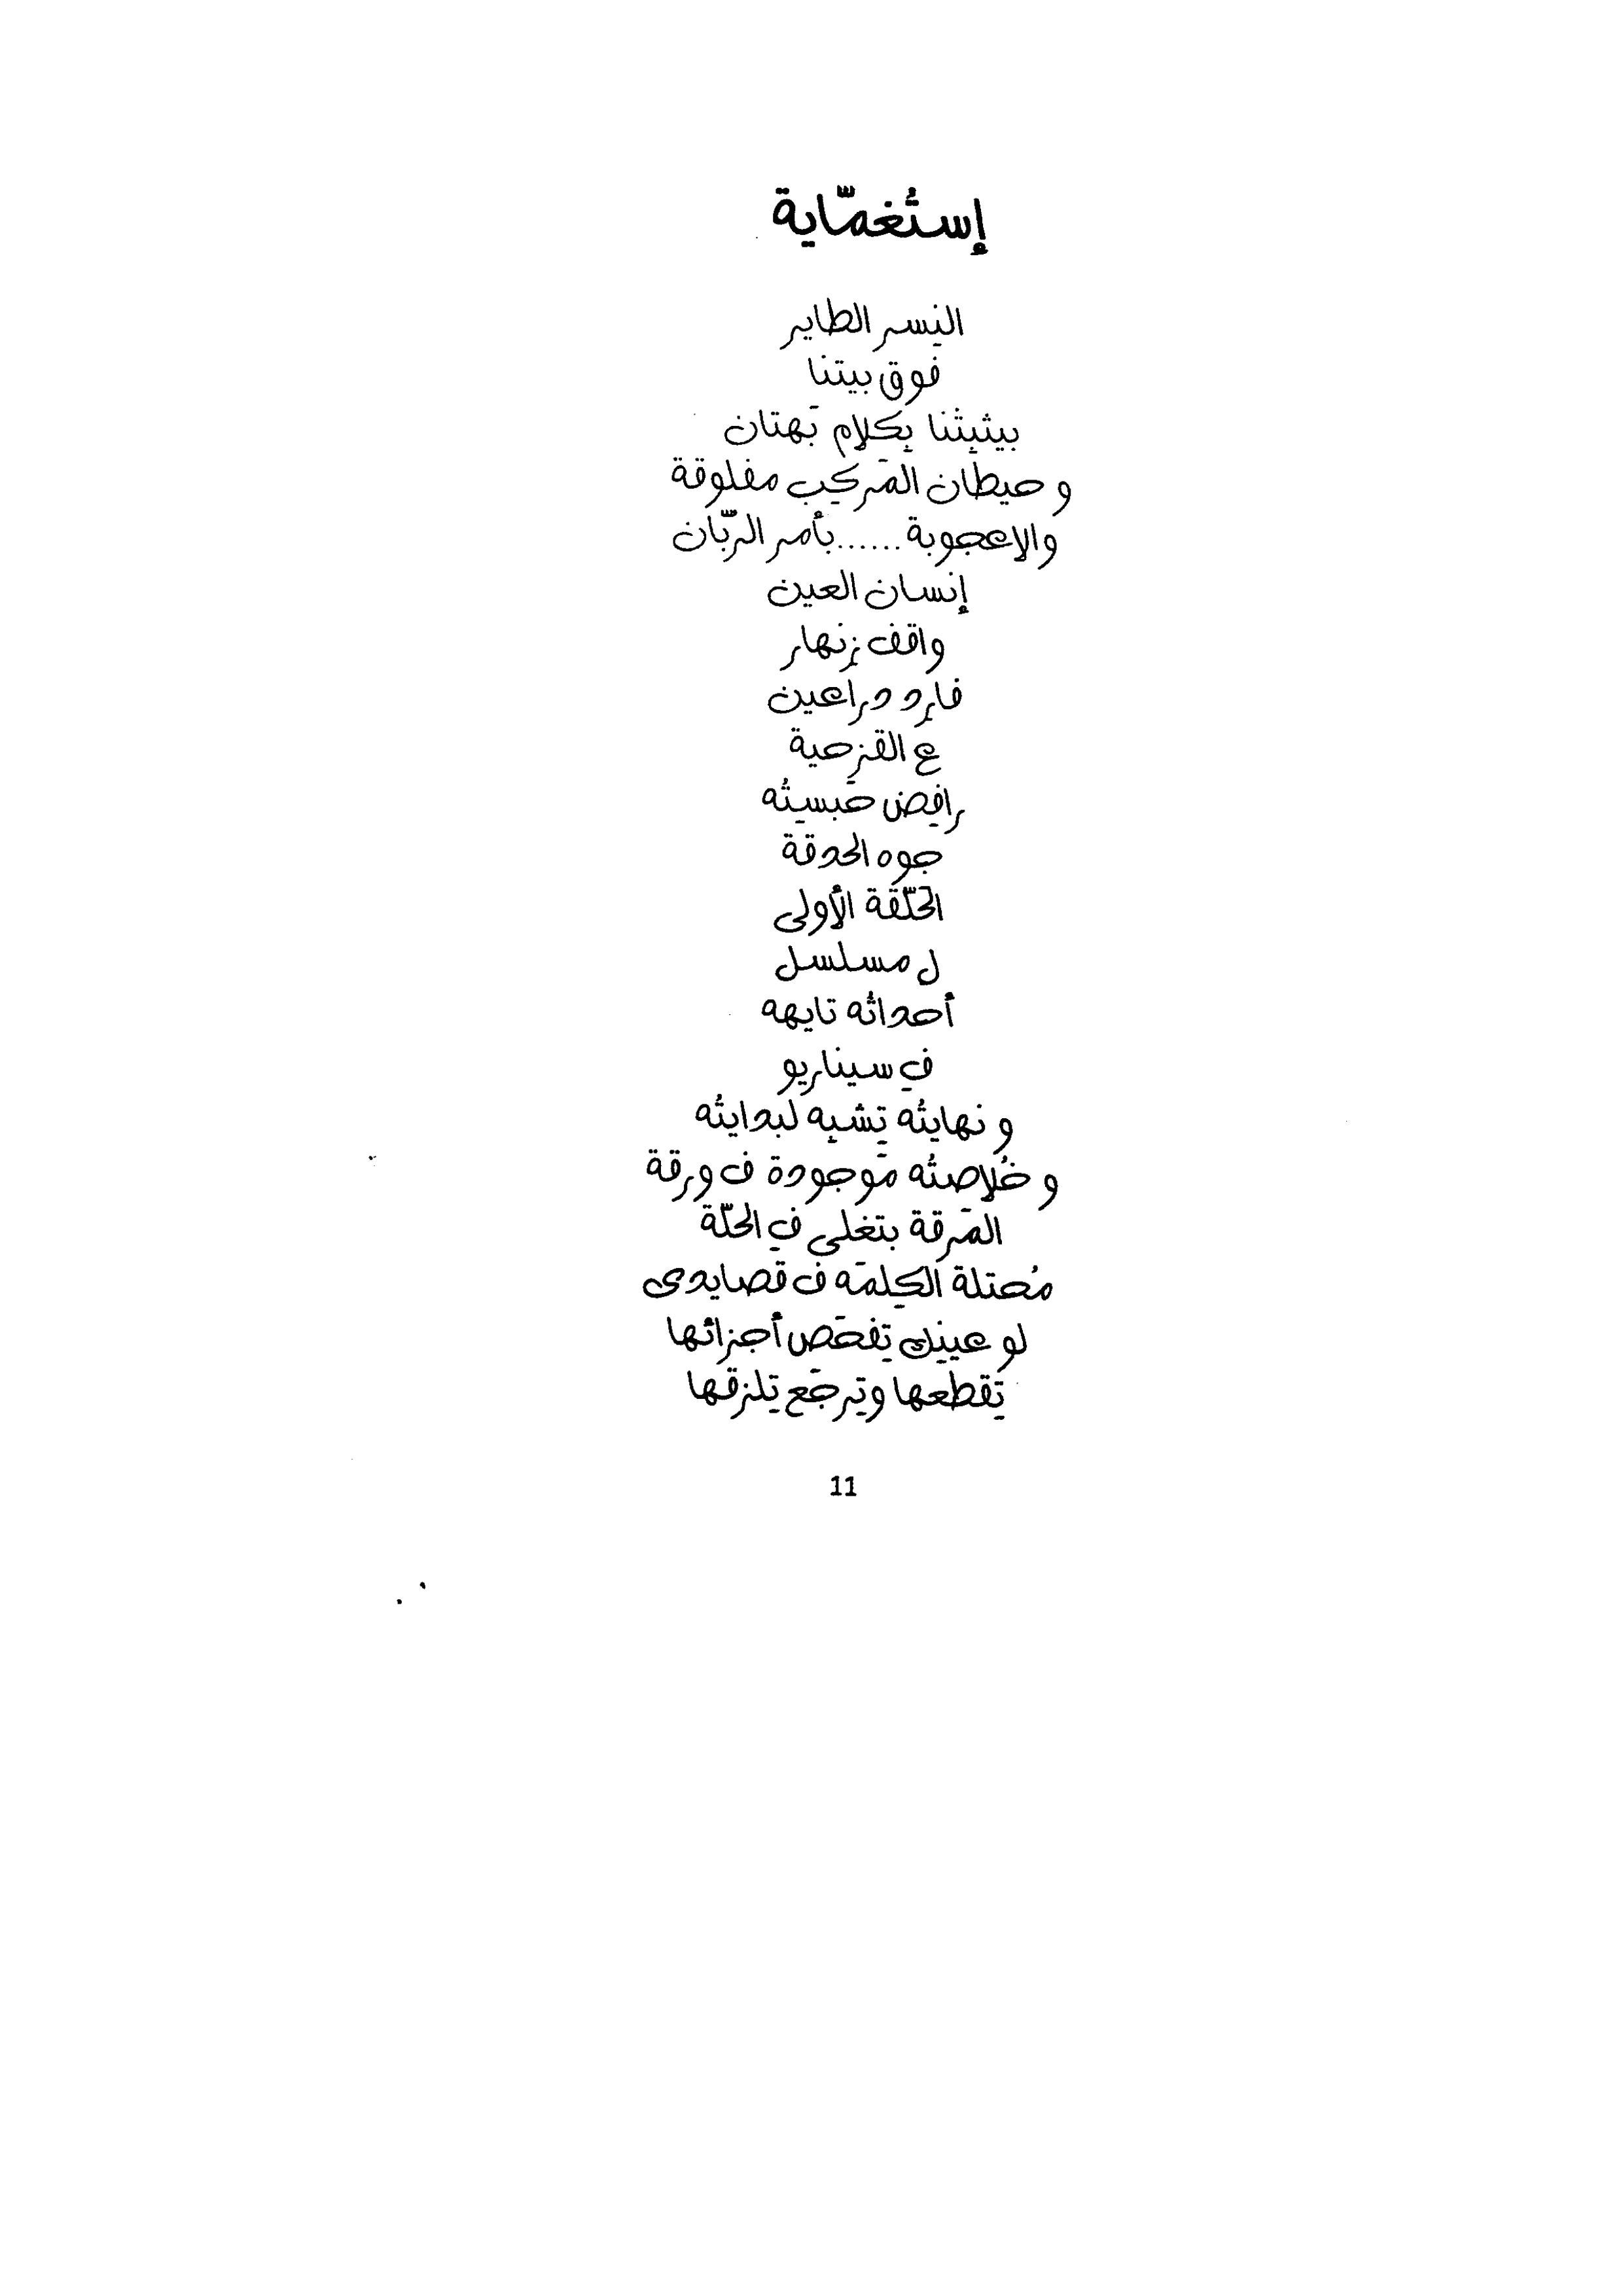 إستُغمّاية
النِسر الطاير
فوق بيتنا
بيثبِتْنا بِكلام بَهتان
و حيطان المَركِب مفلوقة
والاعجوبة ......بأمر الربّان
إنسان العين
واقف زنهار
فارِد دراعين
ع القزحية
رافِض حَبسِيتُه
جوه الحدقة
الحَلّقة الأولى
ل مسلسل
أحداثُه تايهه
في سيناريو
و نهايتُه تِشبِه لبدايتُه
و خُلاصتُه مَوجودة ف ورقة
المَرقة بتغلى في الحلّة
مُحتلة الكِلمَه ف قصايدى
لو عينِك تِفحَص أجزائها
تِقطعها وتِرجَع تِلزقها
11